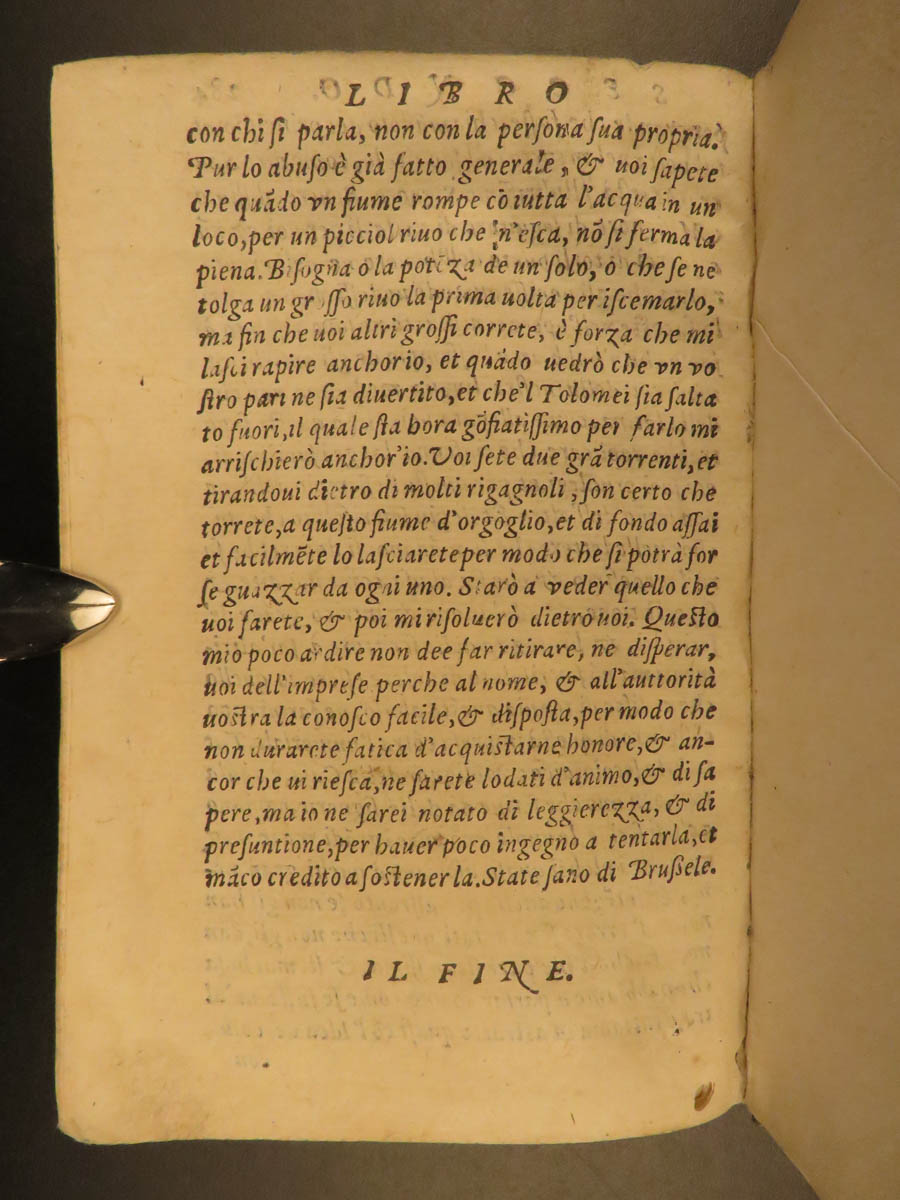 LIBRO
con chi ſi parla, non con la perſona ſua propria.
Pur lo abuſo è già fatto generale, & uoi ſapete
che quãdo vn fiume rompe cō tutta l'acqua in un
loco, per un picciol riuo che n'eſca, nō ſi ferma la
piena. Biſogna o la potēza de un ſolo, o che ſe ne
tolga un groſſo riuo la prima uolta per iſcemarlo,
ma fin che uoi altri groſſi correte, è forza che mi
laſci rapire anchor io, et quãdo uedrò che vn vo
ſtro pari ne ſia diuertito, et che'l Tolomei ſia ſalta
to fuori, il quale ſta hora gōfiatiſſimo per farlo mi
arriſchierò anchor'io. Voi ſete due grã torrenti, et
tirandoui dietro di molti rigagnoli, ſon certo che
torrete, a queſto fiume d'orgoglio, et di fondo aſſai
et facilmēte lo laſciarete per modo che ſi potrà for
ſe guazzar da ogni uno. Starò a veder quello che
uoi farete, & poi mi riſoluerò dietro uoi. Queſto
mio poco ardire non dee far ritirare, ne diſperar,
uoi dell'impreſe perche al nome, & all'auttorità
uoſtra la conoſco facile, & diſpoſta, per modo che
non durarete fatica d'acquiſtarne honore, & an-
cor che ui rieſca, ne ſarete lodati d'animo, & di ſa
pere, ma io ne ſarei notato di leggierezza, & di
preſuntione, per hauer poco ingegno a tentarla, et
mãco credito a ſoſtener la. State ſano di Bruſſele.
IL FINE.